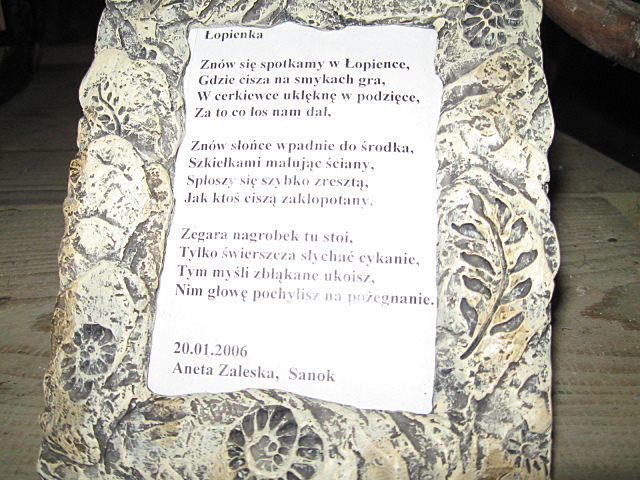 Łopienka
Znów się spotkamy w Łopience,
Gdzie cisza na smykach gra,
W cerkiewce uklęknę w podzięce,
Za to co los nam dał,
Znów słońce wpadnie do środka,
Szkiełkami malując ściany,
Spłoszy się szybko zresztą,
Jak ktoś ciszą zakłopotany.
Zegara nagrobek tu stoi,
Tylko świerszcza słychać cykanie,
Tym myśli zbłąkane ukoisz,
Nim głowę pochylisz na pożegnanie.
20.01.2006
Aneta Zaleska, Sanok